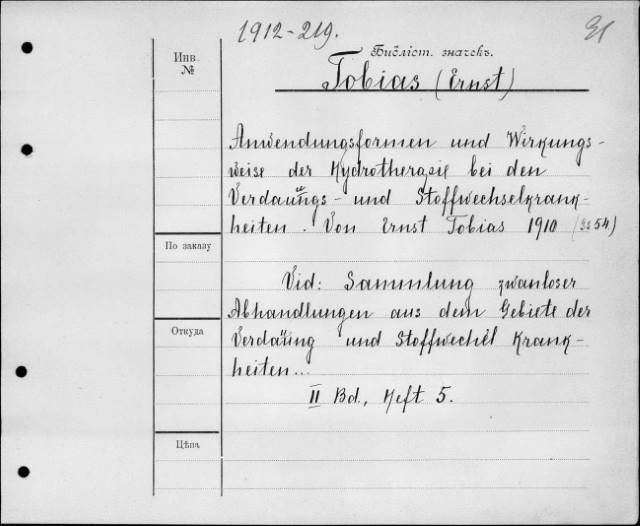 1912-219.
Инв.
№
Библіот. значекъ.
Tobias (Ernst)
Anwendungsformen und Wirkungs-
weise der Hydrotherapie bei den
Verdauungs- und Stoffwechselkrank-
heiten. Von Ernst Tobias 1910 (SS 54.)
По заказу
Vid: Sammlung zwanloser
Abhandlungen aus dem Gebiete der
Откуда
Verdauung und Stoffwechsel Krank-
heiten...
II Bd., Heft 5.
Цѣна